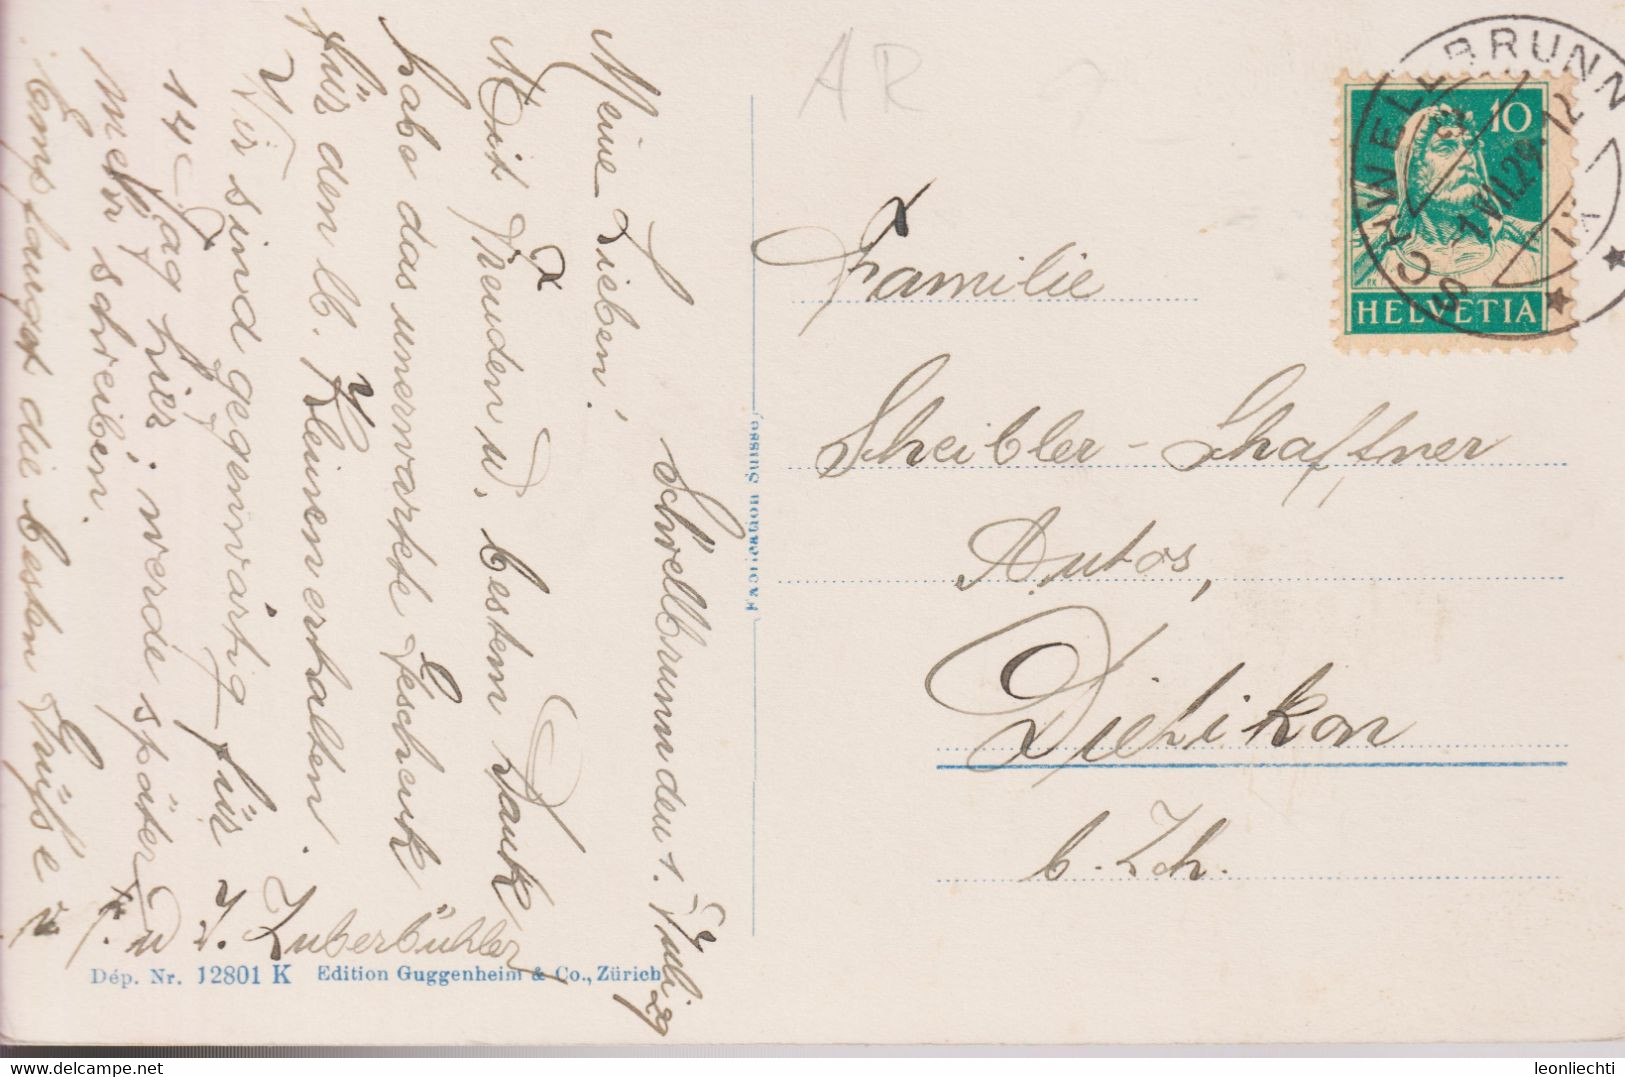 Schwellbrunn den 1. Juli 29
Meine Lieben!
Mit Freuden u. bestem Dank
habe das unerwartete Geschenk
für den lb. Kleinen erhalten.
Wir sind gegenwärtig für
14 Tag hier, werde später
mehr schreiben.
Empfanget die besten Grüsse v
F. u J. Zuberbühler
AR
SCHWELLBRUNN
1.VII.29. 12
10
HELVETIA
Familie
Scheibler-Schaffner
Autos,
Dietikon
b. Zch.
Fabrication Suisse
Dép. Nr. 12801 K Edition Guggenheim & Co., Zürich
leonliechti